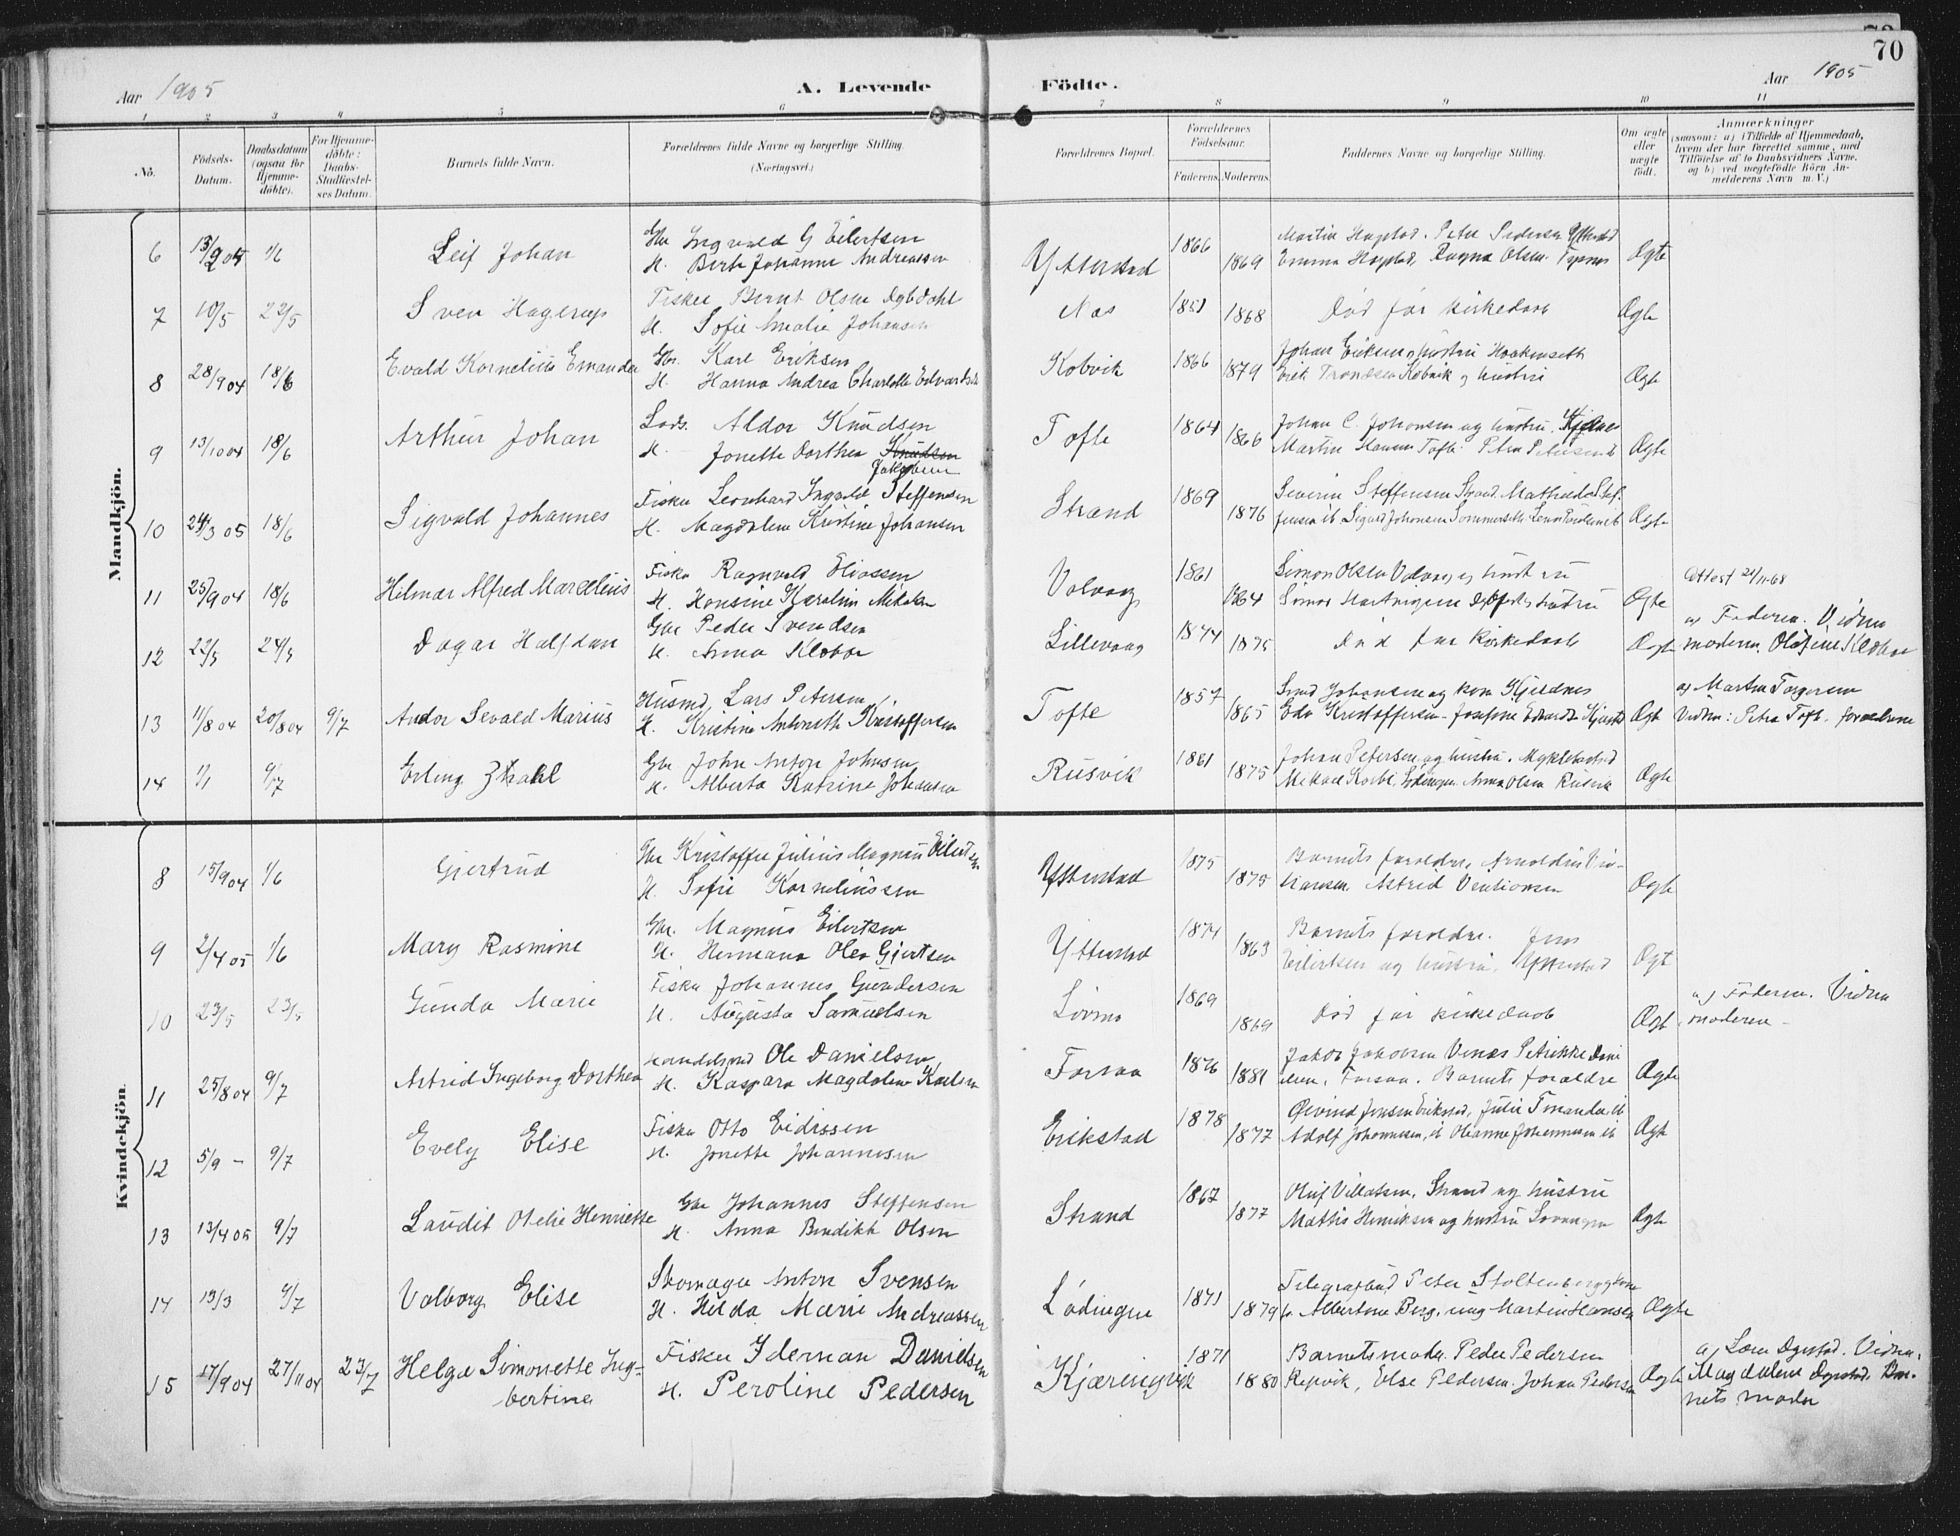 70
Aar 1905
A. Levende
Födte.
Aar 1905
1 2 3 4 5 6 7 8 9 10 11
No.
Födsels-Datum.
Daabsdatum (ogsaa for Hjemmedöbte).
For Hjemmedöbte: Daabs-Stadfæstelses Datum.
Barnets fulde Navn.
Forældrenes fulde Navne og borgerlige Stilling. (Næringsvei.)
Forældrenes Bopæl.
Forældrenes Födselsaar.
Faderens. Moderens.
Faddernes Navne og borgerlige Stilling.
Om ægte eller uægte födt.
Anmærkninger
(saasom: a) i Tilfælde af Hjemmedaab, hvem der har forrettet samme, med Tilföielse af to Daabsvidners Navne, og b) ved uægtefödte Börn Anmelderens Navn m. V.)
Mandkjön.
6 13/9 04 1/6 Leif Johan
Gbr Ingvald G Eilertsen
H. Berth Johanne Andreassen
Ytterstad 1866 1869
Martin Hagstad. Peter Pedersen Ytterstad
Emma Hagstad, Ragna Olsen
Ægte
7 10/5 22/5 Sven Hagerup
Fisker Bernt Olsen
H. Sofie Amalie Johansen
Nes 1851 1868 Död før kirkedaab Ægte
8 28/9 04 18/6 Evald Kornelius Emander
Gbr. Karl Eriksen
H. Hanna Andrea Charlotte Edvardsen
Kobvik 1866 1879
Johan Eriksen og hustru
Erik Trondsen Kobvik og hustru
Ægte
9 13/10 04 18/6 Arthur Johan
Lods. Aldor Knudsen
H. Jonette Dorthea Knudsen
Jakobsen
Tofte 1864 1866
Johan C. Johansen og hustru. Kjeldnes
Martin Hansen Tofte. Petra Petersen ib
Ægte
10 24/3 05 18/6 Sigvald Johannes
Fisker Leonhard Ingvald Steffensen
H. Magdalena Kristine Johansen
Strand 1869 1876
Severin Steffensen Strand. Mathilde Stef-
fensen ib Sigurd Johansen Sommerseth
Ægte
11 25/9 04 18/6 Hilmar Alfred Marcelius
Fisker Ragnvald Eliassen
H. Hansine Karoline Mikalsen
Volvaag 1861 1864
Simon Olsen Volvaag og hustru
Ægte
Attest 21/11-68
12 22/5 24/5 Dagar Halfdan
Gbr Peder Svendsen
H. Anna Klobor
Lillevaag 1874 1875 Död før kirkedaab Ægte
a) Faderen. Vidner
moderen. Olufine
13 11/8 04 20/8 04 9/7 Andor Sevald Marius
Husmd. Lars Petersen
H. Kristine Antonette Kristoffersen
Tofte 1857 1865
Johansen og kone Kjeldnes
Edv Kristoffersen Josefine Edvards
Ægte
a) Martin Torgersen
Vidner: Petra Toft. forældrene
14 1/1 9/7 Erling Thrahl
Gbr John Anton Johnsen
H. Alberta Katrine Johansen
Rusvik 1861 1875
Johan Petersen og hustru.
Anna Olsen Rusvik
Ægte
Kvindekjön.
8 15/9 04 1/6 Gjertrud
Gbr Kristoffer Julius Magnus Eilertsen
H. Sofie Korneliussen
Ytterstad 1875 1875
Barnets forældre, Arnoldus
Astrid
Ægte
9 2/4 05 1/6 Mary Rasmine
Gbr. Magnus Eilertsen
H. Hermana Olea Gjertsen
Ytterstad 1874 1863
Barnets forældre. Jens
Eilertsen og hustru, Ytterstad
Ægt
10 23/5 23/5 Gunda Marie
Fisker Johannes Gundersen
H. Augusta Samuelsen
1869 1869 Död før kirkedaab Ægte
a) Faderen. Vidner
moderen
11 25/8 04 9/7 Astrid Ingeborg Dorthea
Handelsmd Ole Danielsen
H. Kaspara Magdalene Karlsen
Forsaa 1876 1881
Jakob Jakobsen Venas Petrikke Dani
elsen, Forsaa. Barnets forældre
Ægte
12 5/9 – 9/7 Evely Elise
Fisker Otto Eidissen
H. Jonette Johannesen
Erikstad 1878 1877
Øivind Jensen Erikstad, Julie
Adolf Johannesen, ib Olianne Johannesen ib
Ægte
13 13/4 05 9/7 Laudit Otelie Henriette
Gbr Johannes Steffensen
H. Anna Bendikte Olsen
Strand 1867 1877
Oluf Villatsen, Strand og hustru
Mathis Henriksen og hustru
Ægte
14 13/3 9/7 Valborg Elise
Skomager Anton Svensen
H. Hilda Marie Andreassen
Lødingen 1871 1879
Telegrafbud Peter Stoltenberg og kone
Albertine Berg, ung Martin Hansen
Ægte
15 17/9 04 27/11 04 23/7 Helga Simonette Ing-
bertine
Fisker Iderman Danielsen
H. Peroline Pedersen
Kjæringvik 1871 1880
Barnets moder Peder Pedersen
Repvik, Else Pedersen. Johan Pedersen
Ægte
a) Lorn Ågstad. Vidner.
Magdalene Ågstad. Bar-
nets moder